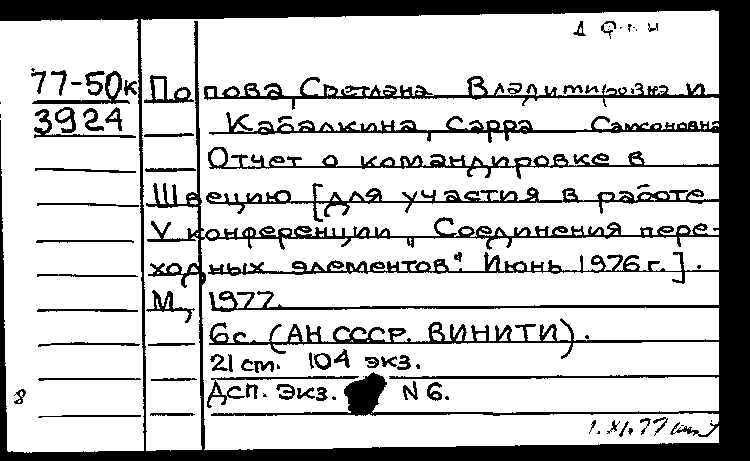 77-50к Попова, Светлана Владимировна и
3924 Кабалкина, Сарра Самсоновна
Отчет о командировке в
Швецию [для участия в работе
V конференции „Соединения пере-
ходных элементов". Июнь 1976 г.].
М., 1977.
6с. (АН СССР. ВИНИТИ).
21 см. 104 экз.
Дсп. Экз. N 6.
8
1.XI.77